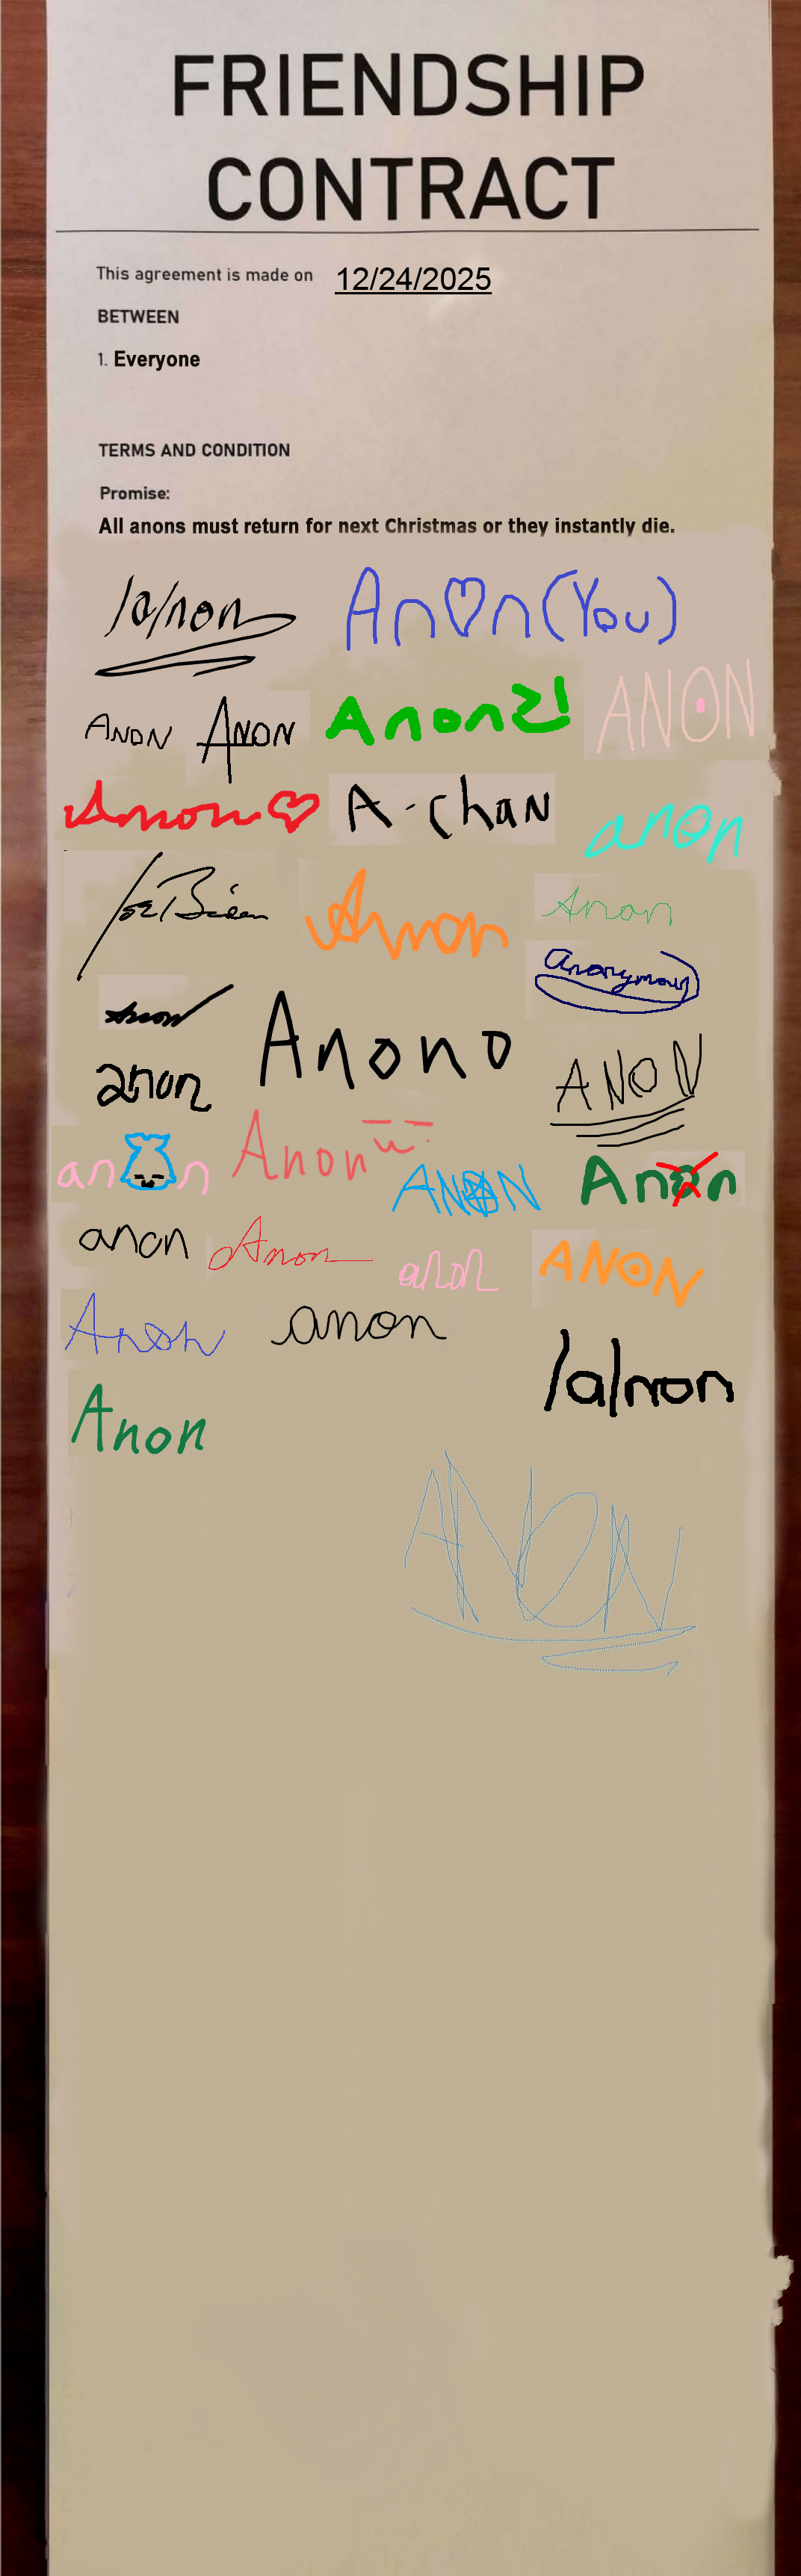 FRIENDSHIP
CONTRACT
This agreement is made on 12/24/2025
BETWEEN
1. Everyone
TERMS AND CONDITION
Promise:
All anons must return for next Christmas or they instantly die.
/a/non
An♡n (You)
ANON
ANON
Anon2!
ANON
Anon♡
A-chan
anon
Joe Biden
Anon
Anon
Anonymous
Anon
Anono
anon
ANON
an n
Anon
ANON
Anon
anon
Anon
anon
ANON
Anon
anon
/a/non
Anon
ANON